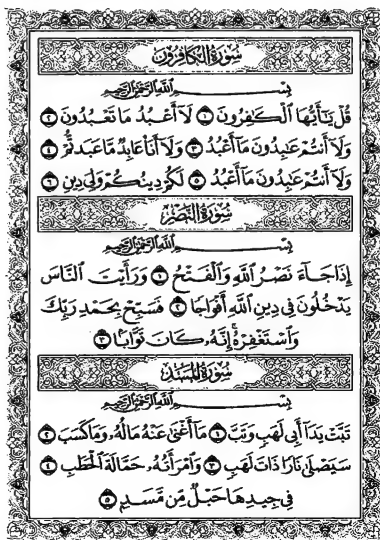 سورة الكافرون
بِسْمِ اللَّهِ الرَّحْمَٰنِ الرَّحِيمِ
قُلْ يَٰٓأَيُّهَا ٱلْكَٰفِرُونَ ١ لَآ أَعْبُدُ مَا تَعْبُدُونَ ٢
وَلَآ أَنتُمْ عَٰبِدُونَ مَآ أَعْبُدُ ٣ وَلَآ أَنَا۠ عَابِدٌ مَّا عَبَدتُّمْ ٤
وَلَآ أَنتُمْ عَٰبِدُونَ مَآ أَعْبُدُ ٥ لَكُمْ دِينُكُمْ وَلِىَ دِينِ ٦
سورة النصر
بِسْمِ اللَّهِ الرَّحْمَٰنِ الرَّحِيمِ
إِذَا جَآءَ نَصْرُ ٱللَّهِ وَٱلْفَتْحُ ١ وَرَأَيْتَ ٱلنَّاسَ
يَدْخُلُونَ فِى دِينِ ٱللَّهِ أَفْوَاجًا ٢ فَسَبِّحْ بِحَمْدِ رَبِّكَ
وَٱسْتَغْفِرْهُ ۚ إِنَّهُۥ كَانَ تَوَّابًۢا ٣
سورة المسد
بِسْمِ اللَّهِ الرَّحْمَٰنِ الرَّحِيمِ
تَبَّتْ يَدَآ أَبِى لَهَبٍ وَتَبَّ ١ مَآ أَغْنَىٰ عَنْهُ مَالُهُۥ وَمَا كَسَبَ ٢
سَيَصْلَىٰ نَارًا ذَاتَ لَهَبٍ ٣ وَٱمْرَأَتُهُۥ حَمَّالَةَ ٱلْحَطَبِ ٤
فِى جِيدِهَا حَبْلٌ مِّن مَّسَدٍۭ ٥